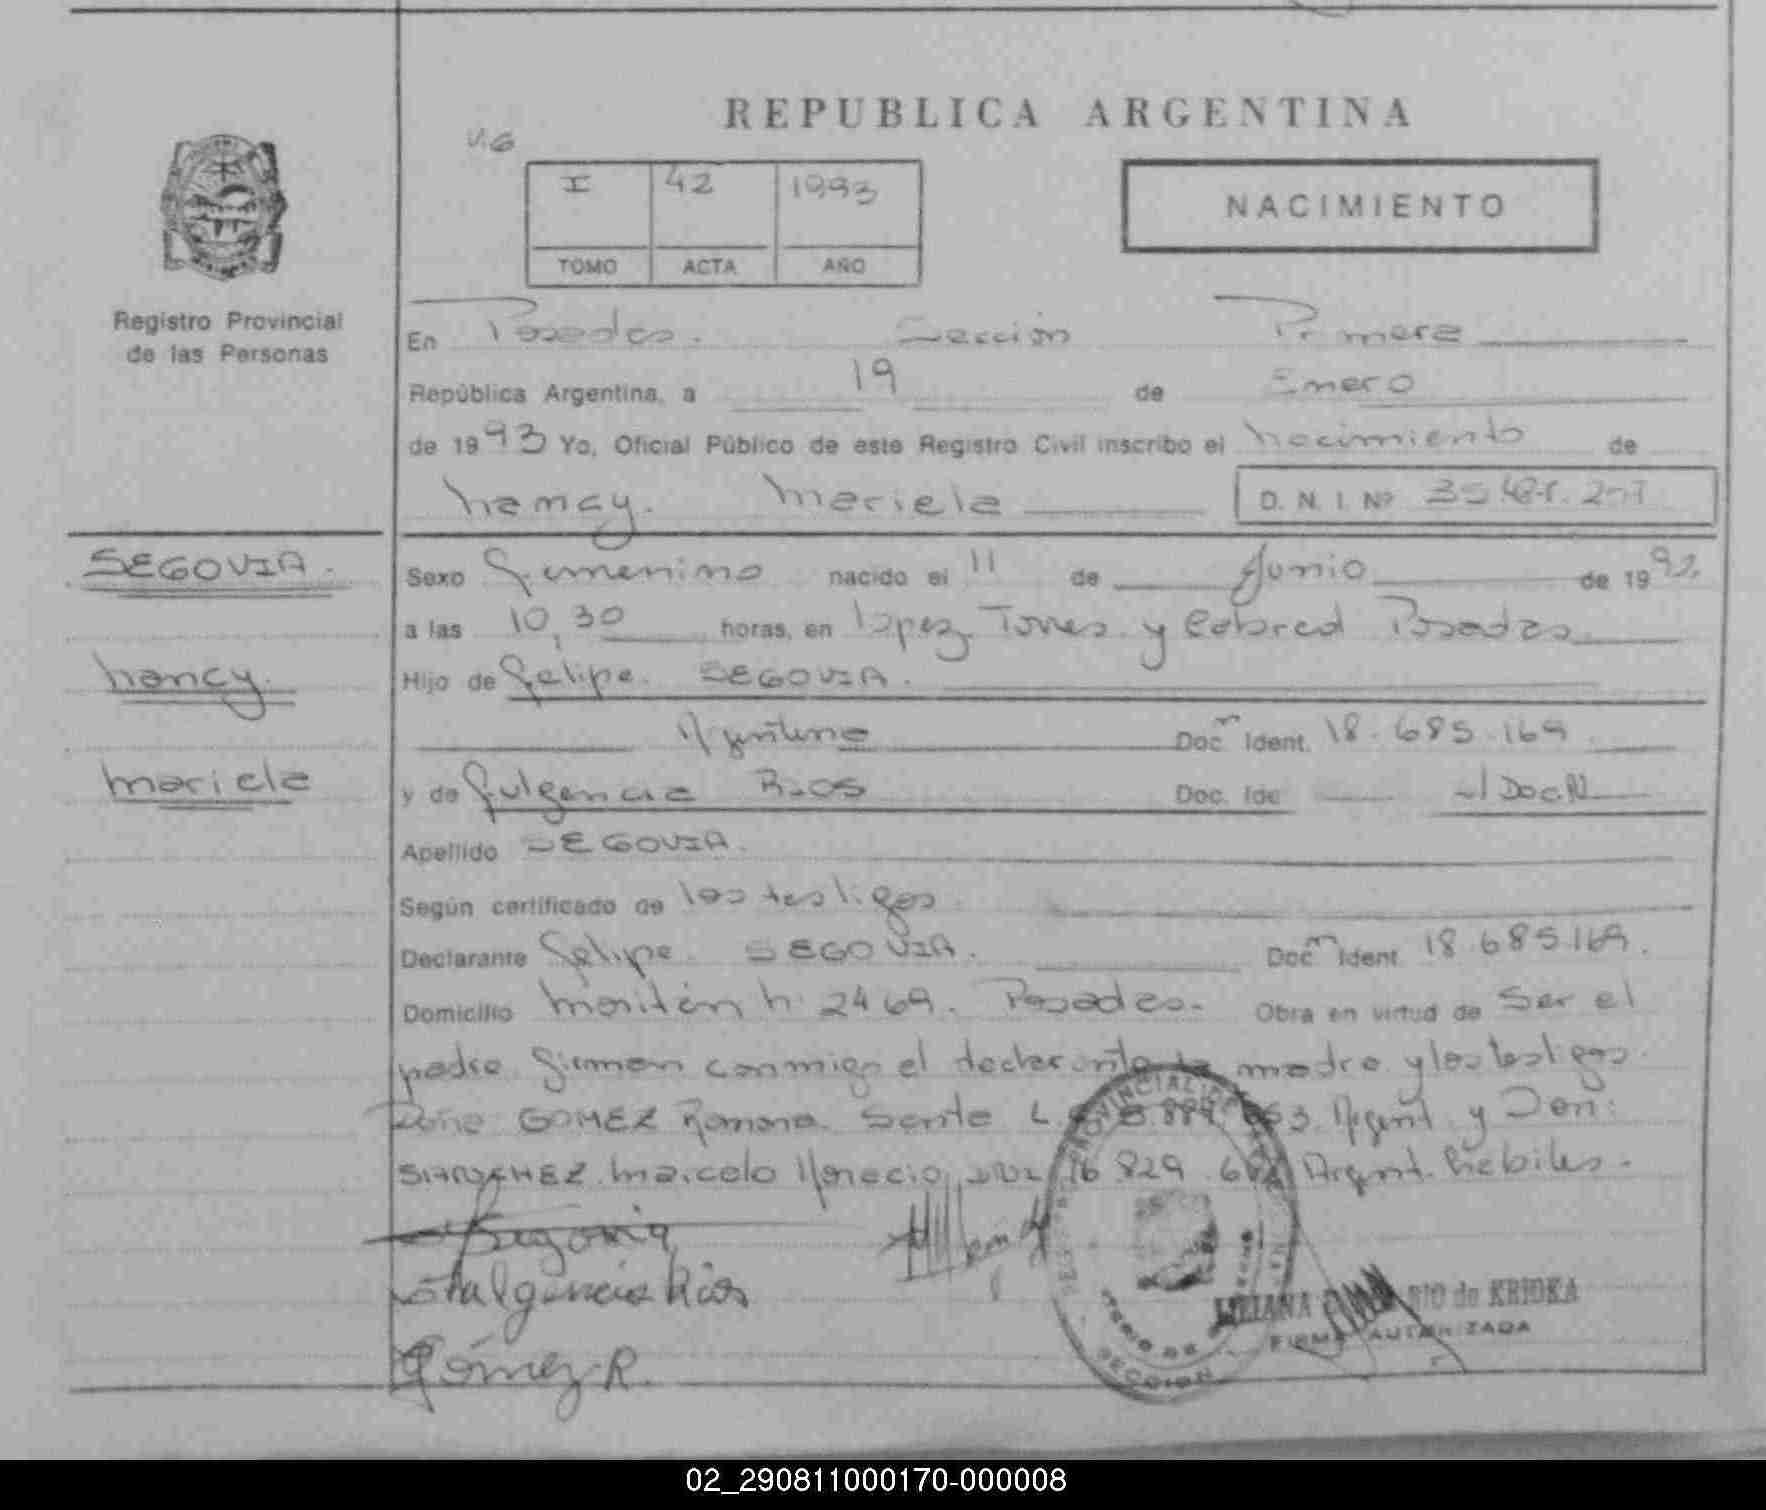 REPUBLICA ARGENTINA
V.G
I 42 1993
TOMO ACTA AÑO
NACIMIENTO
Registro Provincial
de las Personas
En Posadas. Sección Primera
República Argentina, a 19 de Enero
de 1993 Yo, Oficial Público de este Registro Civil inscribo el nacimiento de
nancy. mariela D. N. I. Nº
SEGOVIA.
nancy.
mariela
Sexo Femenino nacido el 11 de Junio de 1992.
a las 10,30 horas, en lopez Torres y Cabred Posadas
Hijo de Felipe. SEGOVIA.
Argentino Doc. Ident. 18.685.169
y de Fulgencia Rios Doc. Ide
Apellido SEGOVIA.
Según certificado de los testigos.
Declarante Felipe. SEGOVIA. Doc. Ident. 18.685.169.
Domicilio n: 2469. Posadas. Obra en virtud de Ser el
padre. Firman conmigo el declarante la madre y los testigos.
Doña GOMEZ Ramona Argent. y Don:
SANCHEZ. marcelo Horacio 16.829 Argent. hábiles.
Segovia
Fulgencia Rios
Gómez R.
LILIANA de KRIOKA
FIRMA AUTORIZADA
SECCION
02_290811000170-000008